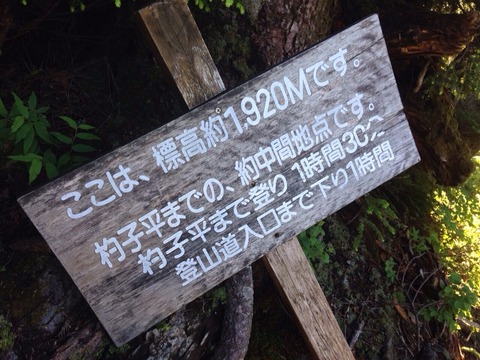 ここは、標高約1,920Mです。
杓子平までの、約中間地点です。
杓子平まで登り 1時間30分
登山道入口まで下り1時間